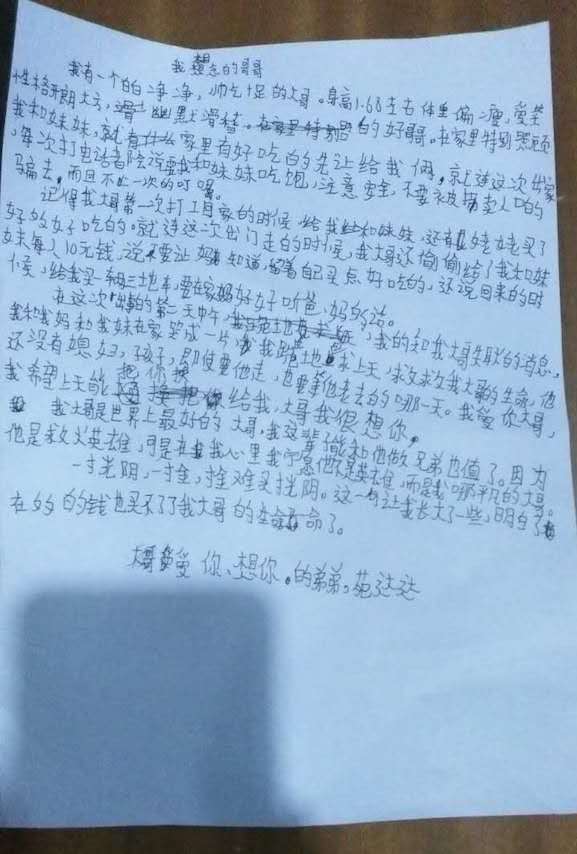 我想念的哥哥
我有一个白白净净，帅气十足的大哥。身高1.68左右体重偏瘦，爱笑
性格开朗大方，幽默滑稽。的好哥哥。在家里特别照顾
我和妹妹，就家里有好吃的先让给我俩，就连这次出家
，每次打电话音陪说要我和妹妹吃饱，注意安全，不要被拐卖人口的
骗去，而且不止一次的叮嘱。
记得我大哥第一次打工回家的时候，给我和妹妹，还有姥姥买了
好多好吃的。就连这次出门走的时候，我大哥还偷偷给了我和妹
妹每人10元钱，说不要让妈知道，留着自己买点好吃的，还说回来的时
候，给我买一辆三地车，要在家好好听爸、妈的话。
在这次出事的第二天中午，我的知我大哥失联的消息，
我和我妈和我妹在家哭成一片，我跪地求上天，救救我大哥的生命，他
还没有媳妇，孩子，即使要他走，也要等他老去的哪一天。我爱你大哥，
我希望上天能把你换给我，大哥我很想你。
我大哥是世界上最好的大哥，我这辈子能和他做兄弟也值了。因为
他是救火英雄，可是在我心里我宁愿他不是英雄，而是我哪平凡的大哥。
一寸光阴，一寸金，寸金难买寸光阴。这一句让我长大了一些，明白了
在多的钱也买不了了我大哥的生命了。
大哥爱你、想你。的弟弟，苑达达